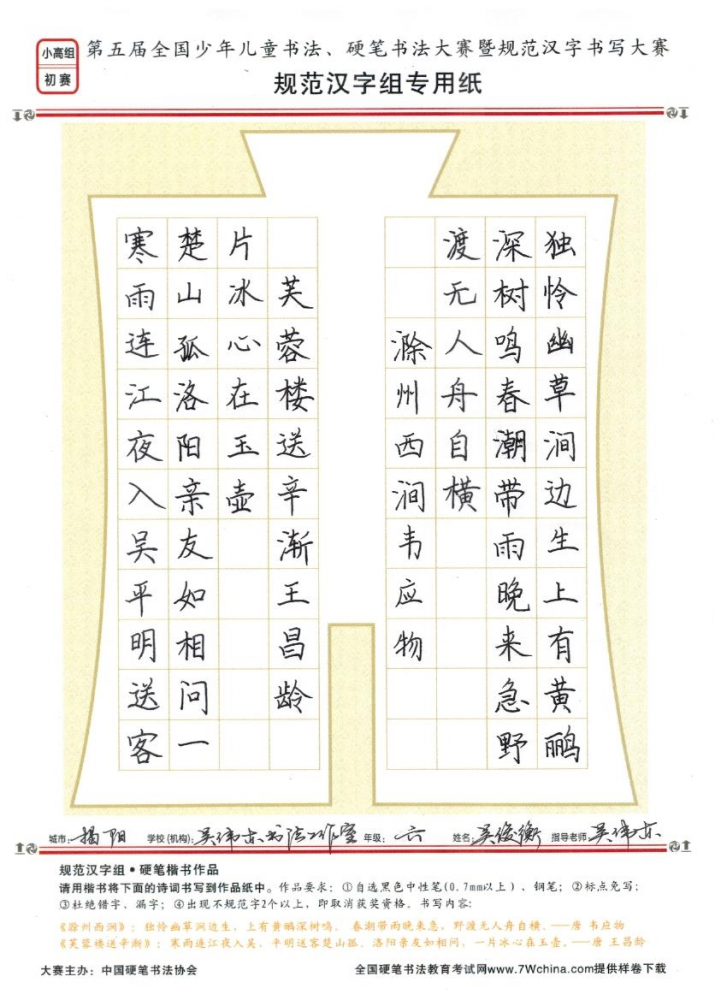 小高组
初赛
第五届全国少年儿童书法、硬笔书法大赛暨规范汉字书写大赛
规范汉字组专用纸
独怜幽草涧边生上有黄鹂
深树鸣春潮带雨晚来急野
渡无人舟自横
滁州西涧韦应物
寒雨连江夜入吴平明送客
楚山孤洛阳亲友如相问一
片冰心在玉壶
芙蓉楼送辛渐王昌龄
城市：揭阳 学校(机构)：吴伟东书法工作室 年级：六 姓名：吴俊衡 指导老师：吴伟东
规范汉字组•硬笔楷书作品
请用楷书将下面的诗词书写到作品纸中。作品要求：①自选黑色中性笔(0.7mm以上)、钢笔；②标点免写；
③杜绝错字、漏字；④出现不规范字2个以上，即取消获奖资格。书写内容：
《滁州西涧》：独怜幽草涧边生，上有黄鹂深树鸣。 春潮带雨晚来急，野渡无人舟自横。——唐 韦应物
《芙蓉楼送辛渐》：寒雨连江夜入吴，平明送客楚山孤。洛阳亲友如相问，一片冰心在玉壶。——唐 王昌龄
大赛主办：中国硬笔书法协会
全国硬笔书法教育考试网www.7Wchina.com提供样卷下载